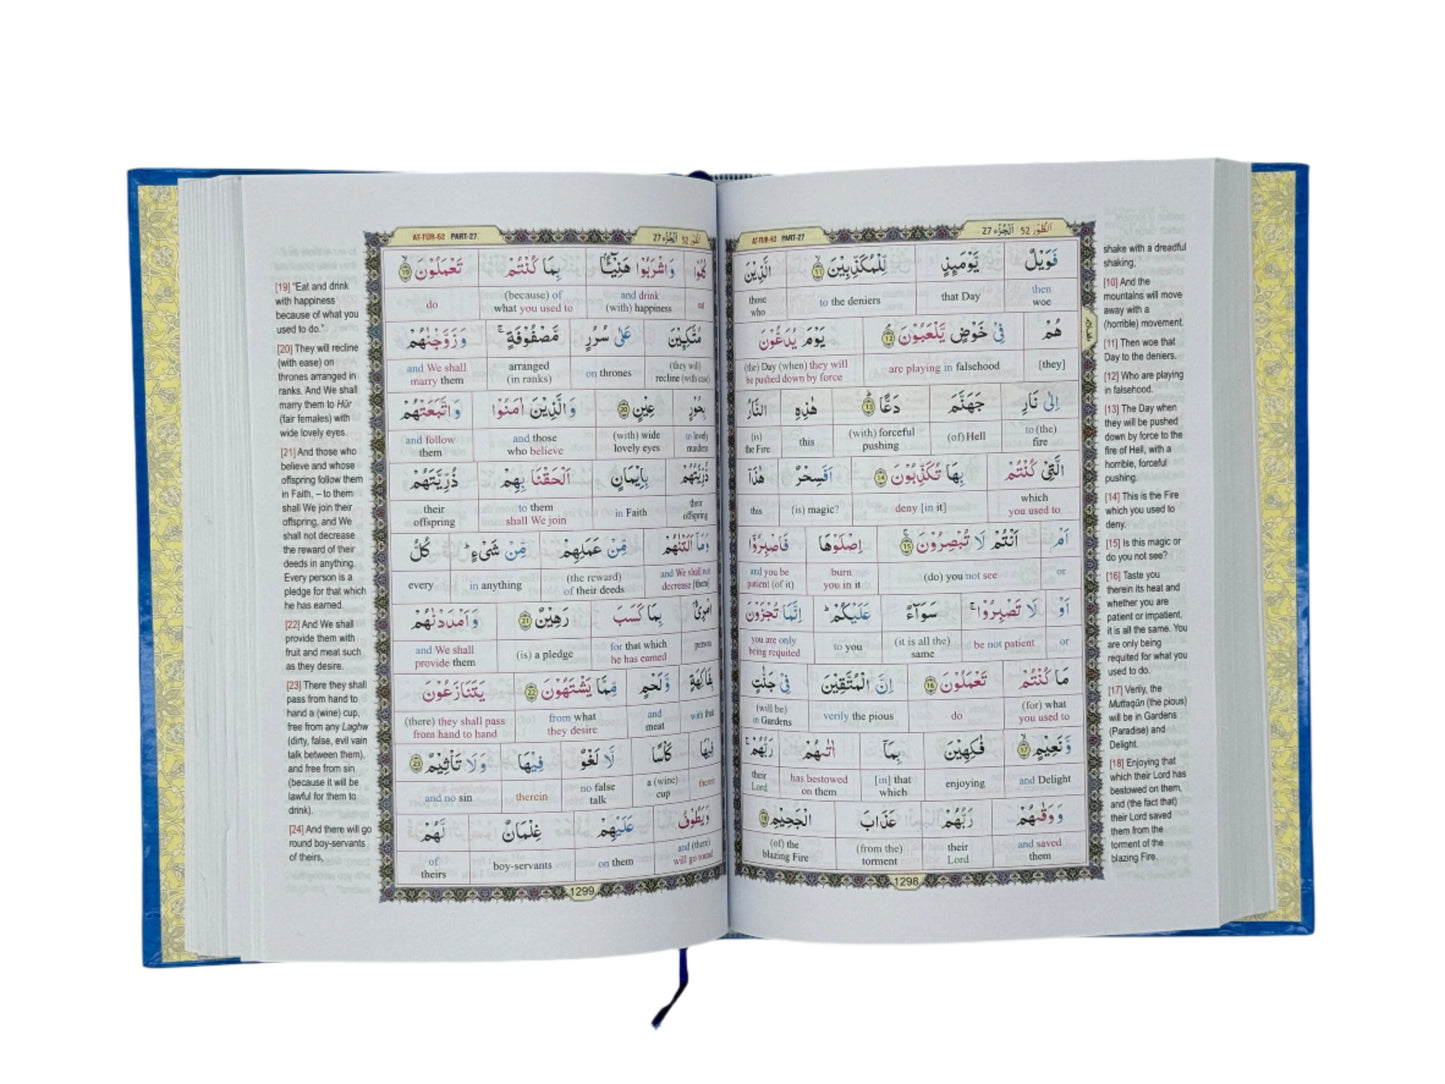 AT-TUR-52 PART-27
اَلطُّوْر 52 اَلْجُزْء 27
فَوَيْلٌ يَّوْمَىِٕذٍ لِّلْمُكَذِّبِيْنَ ۝11 الَّذِيْنَ
then woe that Day to the deniers those who
هُمْ فِيْ خَوْضٍ يَّلْعَبُوْنَ ۝12 يَوْمَ يُدَعُّوْنَ
[they] are playing in falsehood (the) Day (when) they will be pushed down by force
اِلٰى نَارِ جَهَنَّمَ دَعًّا ۝13 هٰذِهِ النَّارُ
to (the) fire (of) Hell (with) forceful pushing this (is) the Fire
الَّتِيْ كُنْتُمْ بِهَا تُكَذِّبُوْنَ ۝14 اَفَسِحْرٌ هٰذَآ
which you used to deny [in it] (is) magic? this
اَمْ اَنْتُمْ لَا تُبْصِرُوْنَ ۝15 اِصْلَوْهَا فَاصْبِرُوْٓا
or (do) you not see burn you in it and you be patient (of it)
اَوْ لَا تَصْبِرُوْا ۚ سَوَآءٌ عَلَيْكُمْ ۭ اِنَّمَا تُجْزَوْنَ
or be not patient (it is all the) same to you you are only being requited
مَا كُنْتُمْ تَعْمَلُوْنَ ۝16 اِنَّ الْمُتَّقِيْنَ فِيْ جَنّٰتٍ
(for) what you used to do verily the pious (will be) in Gardens
وَّنَعِيْمٍ ۝17 فٰكِهِيْنَ بِمَآ اٰتٰىهُمْ رَبُّهُمْ ۚ
and Delight enjoying [in] that which has bestowed on them their Lord
وَوَقٰىهُمْ رَبُّهُمْ عَذَابَ الْجَحِيْمِ ۝18
and saved them their Lord (from the) torment (of) the blazing Fire
1298
shake with a dreadful
shaking,
[10] And the
mountains will move
away with a
(horrible) movement.
[11] Then woe that
Day to the deniers.
[12] Who are playing
in falsehood.
[13] The Day when
they will be pushed
down by force to the
fire of Hell, with a
horrible, forceful
pushing.
[14] This is the Fire
which you used to
deny.
[15] Is this magic or
do you not see?
[16] Taste you
therein its heat and
whether you are
patient or impatient,
it is all the same. You
are only being
requited for what you
used to do.
[17] Verily, the
Muttaqûn (the pious)
will be in Gardens
(Paradise) and
Delight.
[18] Enjoying that
which their Lord has
bestowed on them,
and (the fact that)
their Lord saved
them from the
torment of the
blazing Fire.
AT-TUR-52 PART-27
اَلطُّوْر 52 اَلْجُزْء 27
كُلُوْا وَاشْرَبُوْا هَنِيْٓــــًٔۢا بِمَا كُنْتُمْ تَعْمَلُوْنَ ۝19
eat and drink (with) happiness (because) of what you used to do
مُتَّكِـِٕيْنَ عَلٰي سُرُرٍ مَّصْفُوْفَةٍ ۚ وَزَوَّجْنٰهُمْ
(they will) recline (with ease) on thrones arranged (in ranks) and We shall marry them
بِحُوْرٍ عِيْنٍ ۝20 وَالَّذِيْنَ اٰمَنُوْا وَاتَّبَعَتْهُمْ
to lovely maidens (with) wide lovely eyes and those who believe and follow them
ذُرِّيَّتُهُمْ بِاِيْمَانٍ اَلْحَقْنَا بِهِمْ ذُرِّيَّتَهُمْ
their offspring in Faith to them shall We join their offspring
وَمَآ اَلَتْنٰهُمْ مِّنْ عَمَلِهِمْ مِّنْ شَيْءٍ ۭ كُلُّ
and We shall not decrease [them] (the reward) of their deeds in anything every
امْرِئٍۢ بِمَا كَسَبَ رَهِيْنٌ ۝21 وَاَمْدَدْنٰهُمْ
person for that which he has earned (is) a pledge and We shall provide them
بِفَاكِهَةٍ وَّلَحْمٍ مِّمَّا يَشْتَهُوْنَ ۝22 يَتَنَازَعُوْنَ
with fruit and meat from what they desire (there) they shall pass from hand to hand
فِيْهَا كَاْسًا لَّا لَغْوٌ فِيْهَا وَلَا تَاْثِيْمٌ ۝23
therein a (wine) cup no false talk therein and no sin
وَيَطُوْفُ عَلَيْهِمْ غِلْمَانٌ لَّهُمْ
and (there) will go round on them boy-servants of theirs
1299
[19] "Eat and drink
with happiness
because of what you
used to do."
[20] They will recline
(with ease) on
thrones arranged in
ranks. And We shall
marry them to Hûr
(fair females) with
wide lovely eyes.
[21] And those who
believe and whose
offspring follow them
in Faith, – to them
shall We join their
offspring, and We
shall not decrease
the reward of their
deeds in anything.
Every person is a
pledge for that which
he has earned.
[22] And We shall
provide them with
fruit and meat such
as they desire.
[23] There they shall
pass from hand to
hand a (wine) cup,
free from any Laghw
(dirty, false, evil vain
talk between them),
and free from sin
(because it will be
lawful for them to
drink).
[24] And there will go
round boy-servants
of theirs,